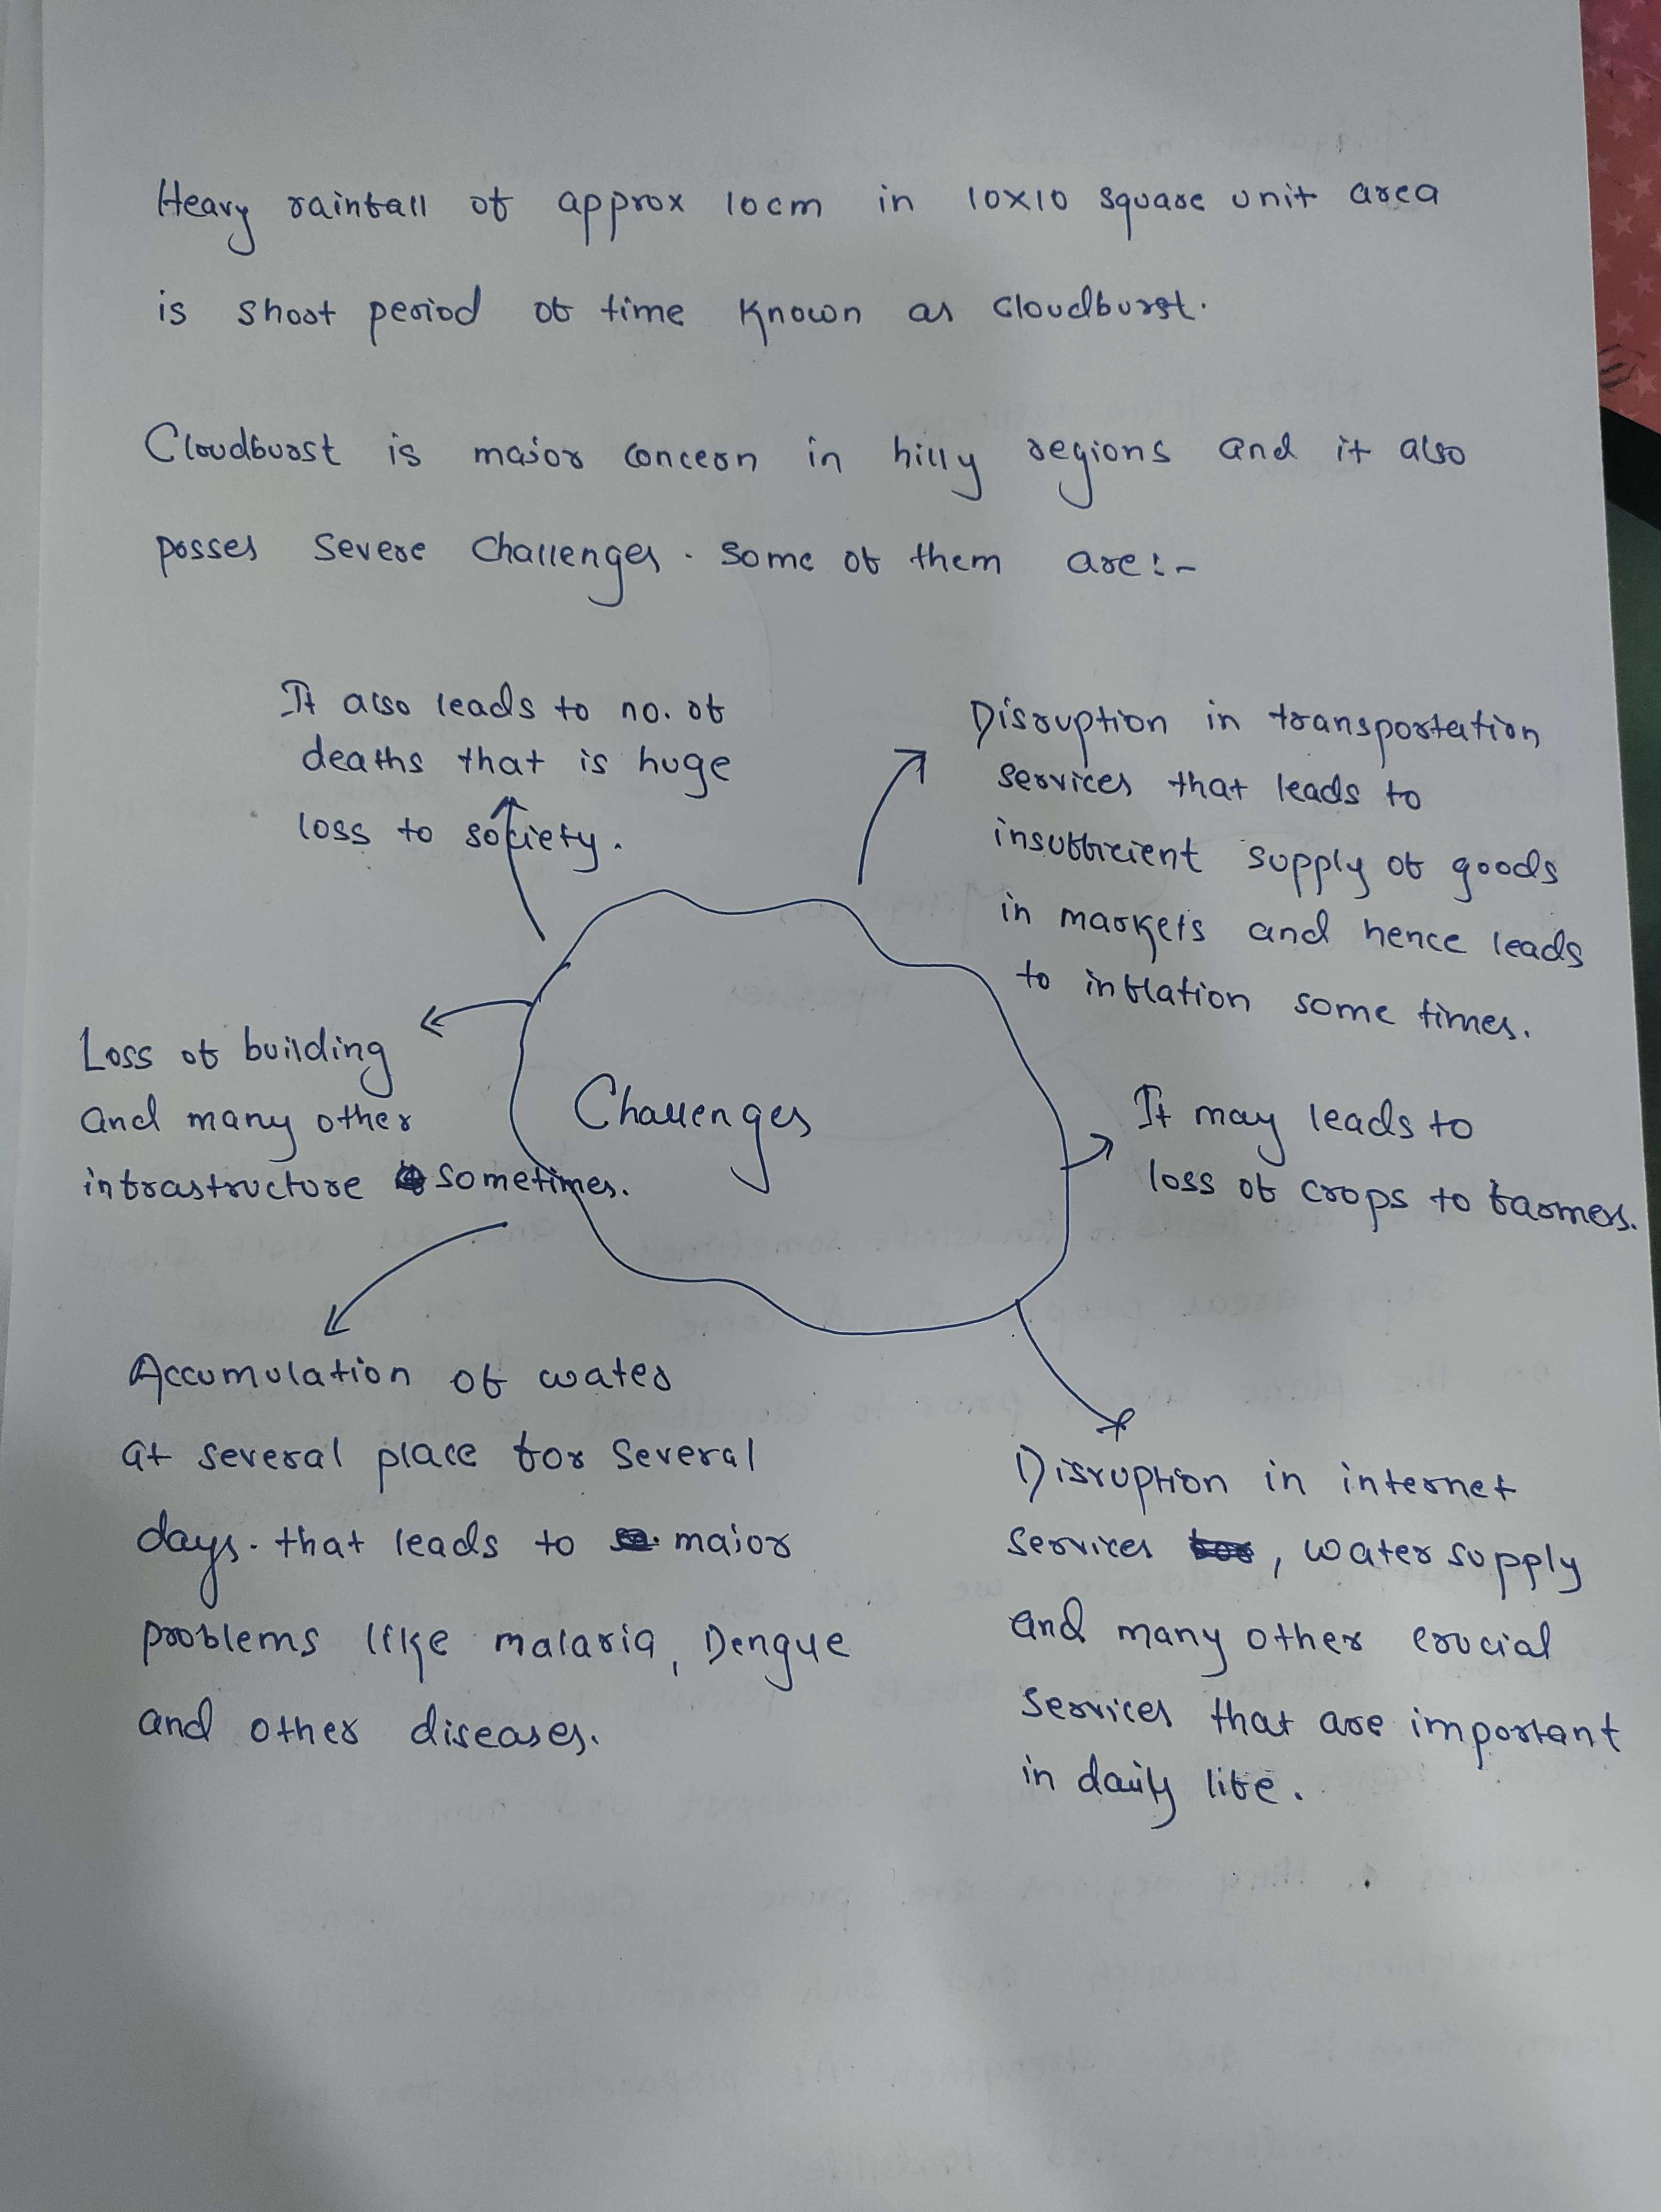 Heavy rainfall of approx 10cm in 10x10 square unit area
is short period of time known as cloudburst.
Cloudburst is major concern in hilly regions and it also
posses severe challenges. Some of them are:-
It also leads to no. of
deaths that is huge
loss to society.
Disruption in transportation
services that leads to
insufficient supply of goods
in markets and hence leads
to inflation some times.
Loss of building
and many other
infrastructure sometimes.
Challenges
It may leads to
loss of crops to farmers.
Accumulation of water
at several place for several
days. that leads to major
problems like malaria, Dengue
and other diseases.
Disruption in internet
services, water supply
and many other crucial
services that are important
in daily life.